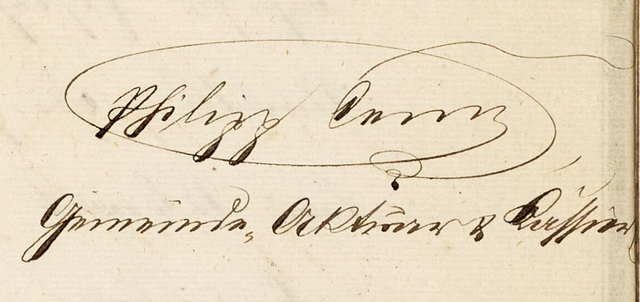 Philipp
Gemeinde-Aktuar & Cassier